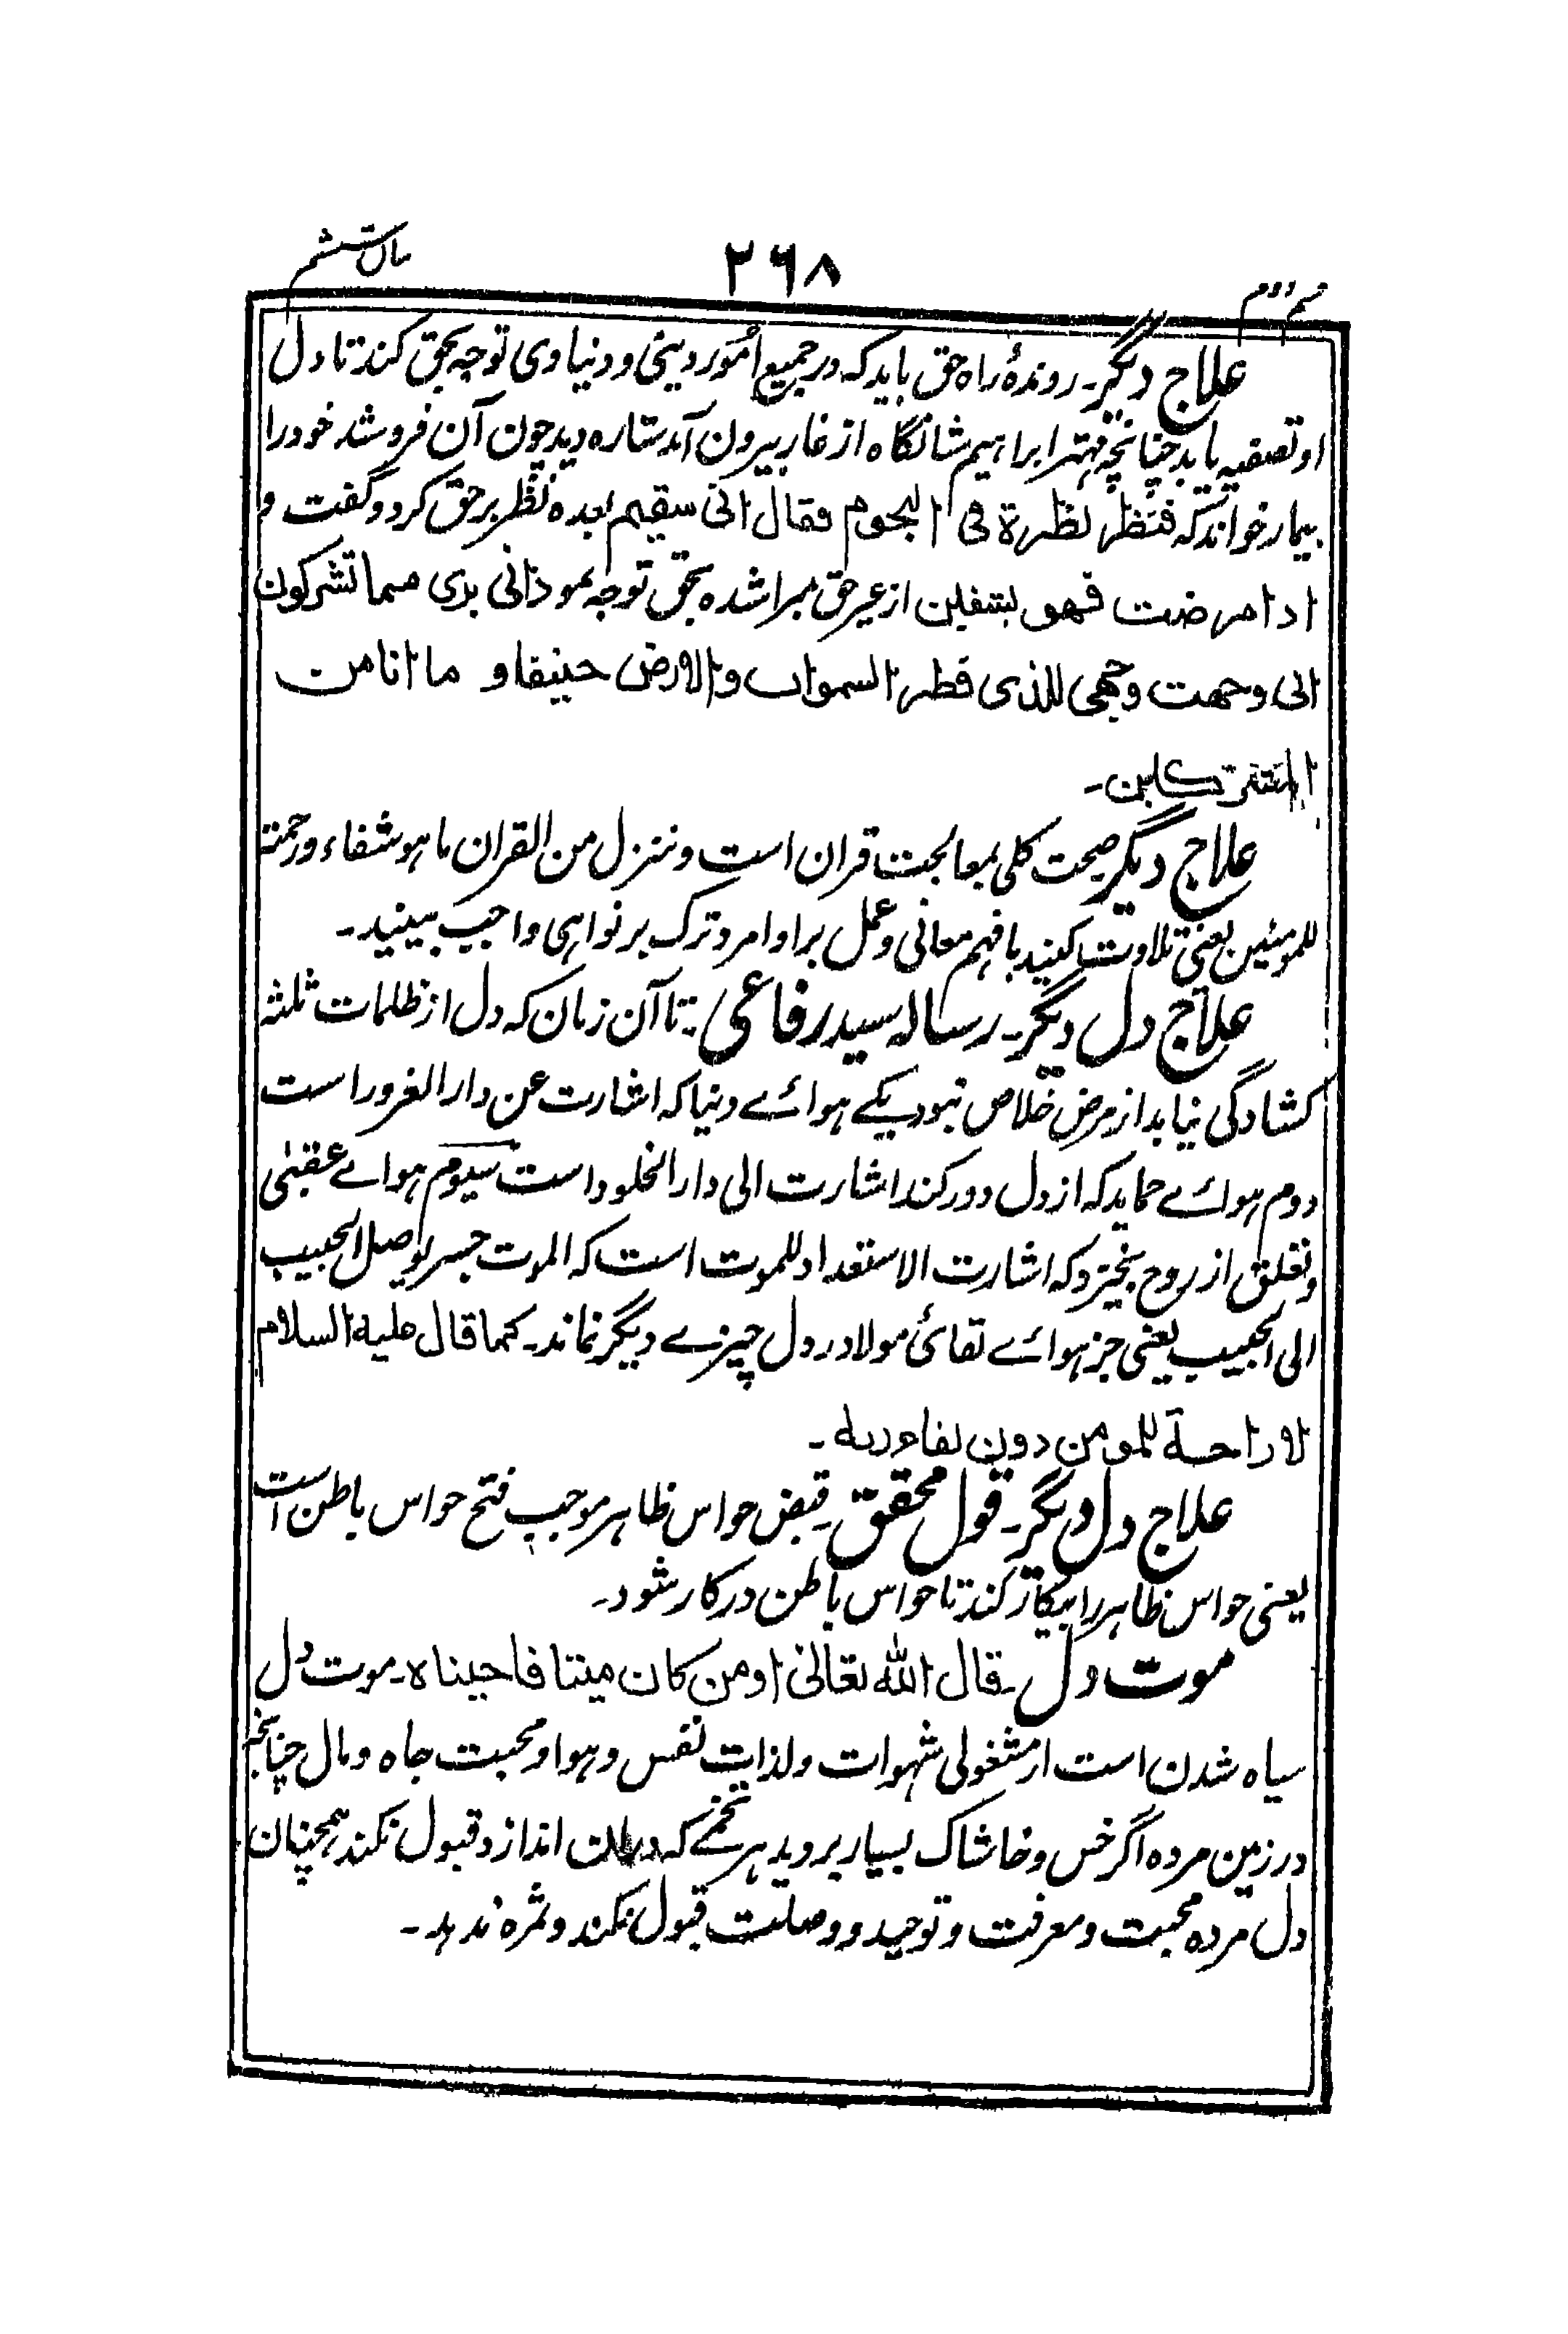 قسم دوم ۲۶۸ باب ششم
علاج دیگر۔ روندۂ راہ حق باید کہ در جمیع امور دینی و دنیاوی توجہ بحق کند تا دل
او تصفیہ یابد چنانچہ مہتر ابراہیم شانگاہ از غار بیرون آمد ستارہ دید چون آن فروشد خود را
بیمار خواند کہ فنظر نظرۃ فی النجوم فقال انی سقیم بعدہ نظر بر حق کرد و گفت و
اذا مرضت فهو یشفین از غیر حق مبرا شدہ بحق توجہ نمود انی بری مما تشرکون
انی وجهت وجهی للذی فطر السموات والارض حنیفا و ما انا من
المشرکین۔
علاج دیگر صحت کلی بمعالجت قران است و ننزل من القران ما هو شفاء و رحمۃ
للمومنین یعنی تلاوت کنید با فہم معانی و عمل بر اوامر و ترک بر نواہی واجب بینید۔
علاج دل دیگر۔ رسالہ سید رفاعی: تا آن زمان کہ دل از ظلمات ثلثہ
کشادگی نیابد از مرض خلاص نبود یکے ہوائے دنیا کہ اشارت عن دار الغرور است
دوم ہوائے کہ از دل دور کند اشارت الی دار الخلود است سیوم ہوائے عقبیٰ
و تعلق از روح بخیزد کہ اشارت الاستعداد للموت است کہ الموت جسر یوصل الحبیب
الی الحبیب یعنی جز ہوائے لقائ مولا در دل چیزے دیگر نماند۔ کما قال علیہ السلام
لا راحۃ للمومن دون لقاء ربہ۔
علاج دل دیگر۔ قول محقق۔ قبض حواس ظاہر موجب فتح حواس باطن است
یعنی حواس ظاہر را بیکار کند تا حواس باطن در کار شود۔
موت دل۔ قال اللہ تعالیٰ اومن کان میتا فاحییناہ۔ موت دل
سیاہ شدن است از مشغولی شہوات و لذات نفس و ہوا و محبت جاہ و مال چنانچہ
در زمین مردہ اگر خس و خاشاک بسیار بروید ہر تخمے کہ دران اندازد قبول نکند ہمچنان
دل مردہ محبت و معرفت و توحید و وصلت قبول نکند و ثمرہ ندہد۔